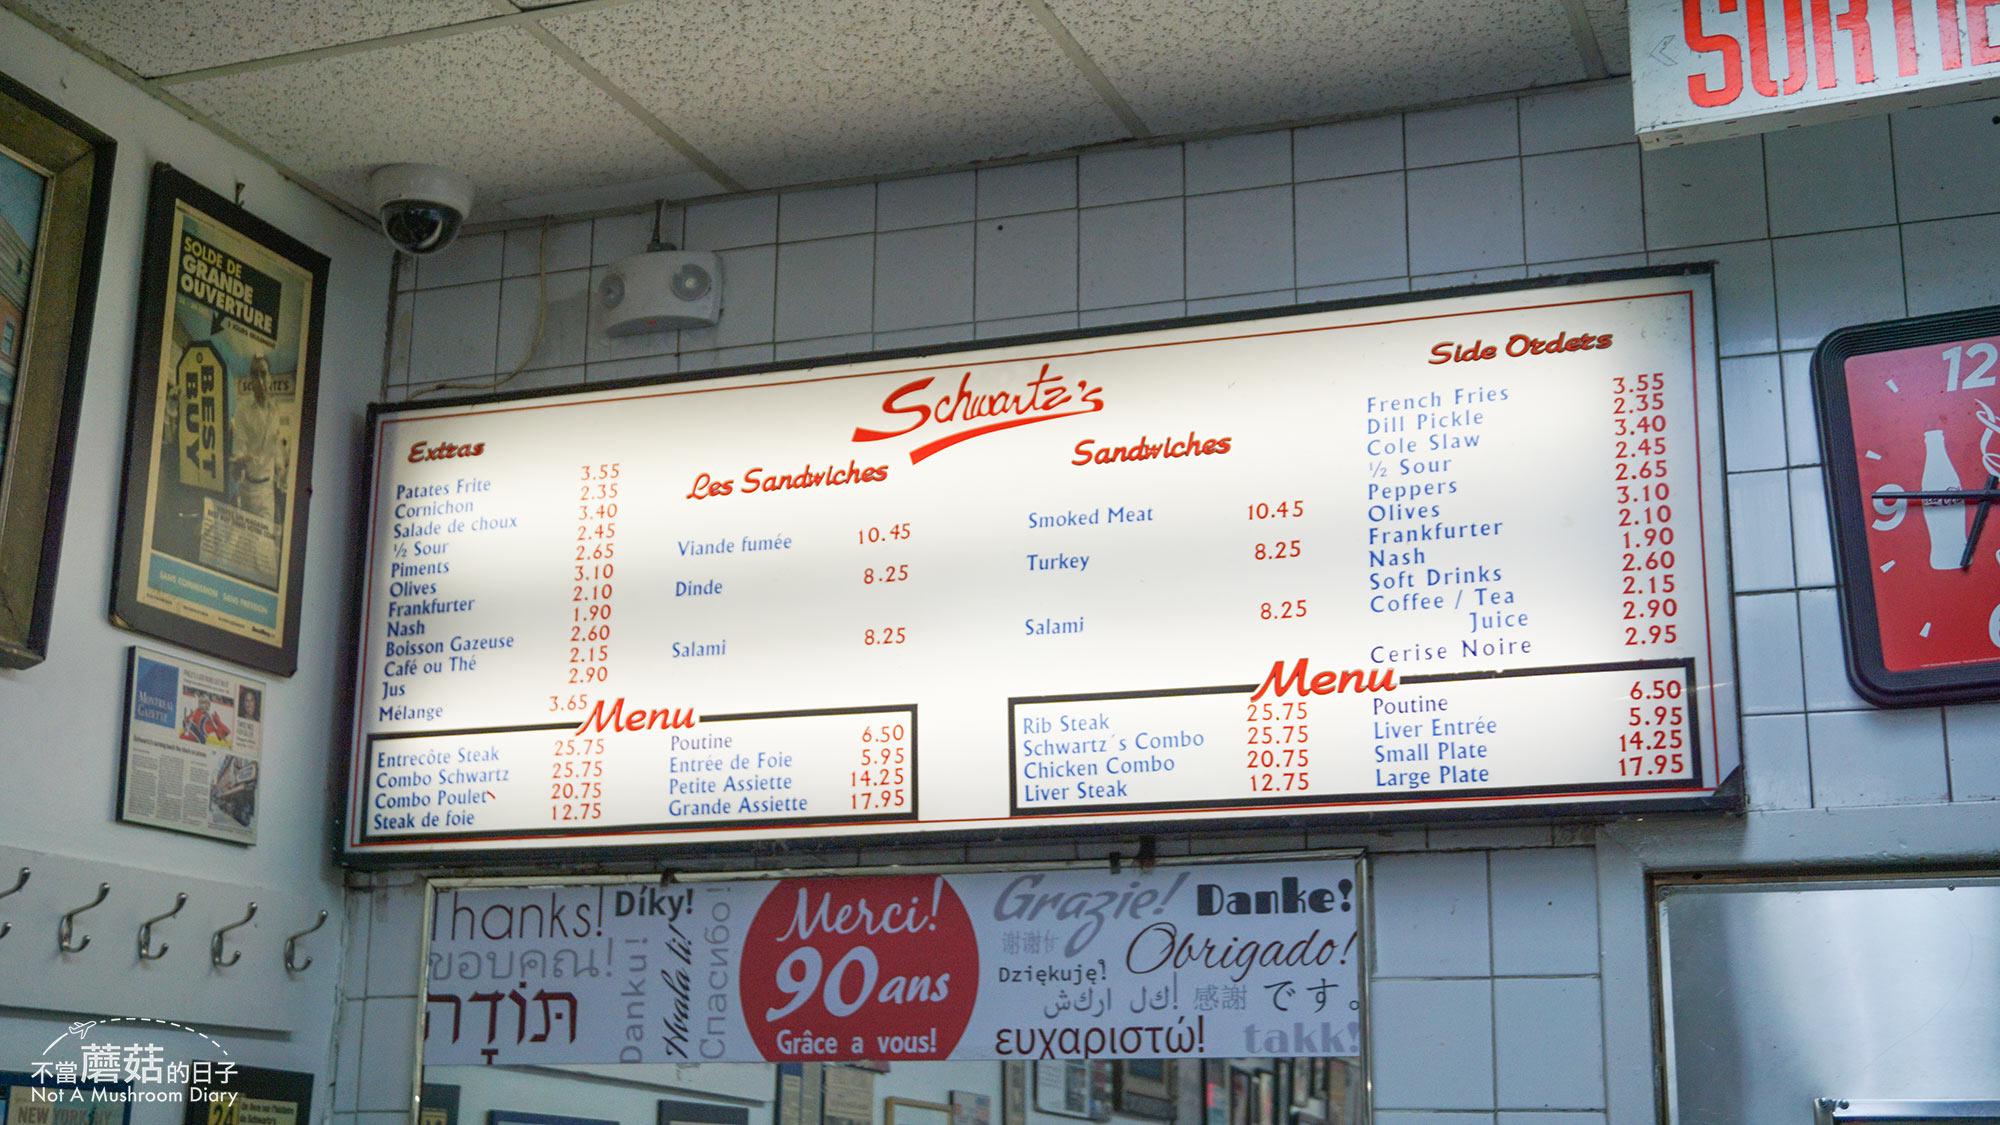 SORTIE
SOLDE DE
GRANDE
OUVERTURE
BEST
BUY
SANS COMMISSION SANS PRESSION
MONTREAL
GAZETTE
Schwartz's
Extras
Patates Frite 3.55
Cornichon 2.35
Salade de choux 3.40
½ Sour 2.45
Piments 2.65
Olives 3.10
Frankfurter 2.10
Nash 1.90
Boisson Gazeuse 2.60
Café ou Thé 2.15
Jus 2.90
Mélange 3.65
Les Sandwiches
Viande fumée 10.45
Dinde 8.25
Salami 8.25
Sandwiches
Smoked Meat 10.45
Turkey 8.25
Salami 8.25
Side Orders
French Fries 3.55
Dill Pickle 2.35
Cole Slaw 3.40
½ Sour 2.45
Peppers 2.65
Olives 3.10
Frankfurter 2.10
Nash 1.90
Soft Drinks 2.60
Coffee / Tea 2.15
Juice 2.90
Cerise Noire 2.95
Menu
Entrecôte Steak 25.75
Combo Schwartz 25.75
Combo Poulet 20.75
Steak de foie 12.75
Poutine 6.50
Entrée de Foie 5.95
Petite Assiette 14.25
Grande Assiette 17.95
Menu
Rib Steak 25.75
Schwartz´s Combo 25.75
Chicken Combo 20.75
Liver Steak 12.75
Poutine 6.50
Liver Entrée 5.95
Small Plate 14.25
Large Plate 17.95
12
9
6
Thanks!
Díky!
ขอบคุณ!
תּוֹדָה
Danku!
Hvala ti!
Спасибо!
Merci!
90 ans
Grâce a vous!
Grazie!
Danke!
谢谢
Obrigado!
Dziękuję!
感謝
です。
ευχαριστώ!
takk!
NEW YORK NY
24
不當蘑菇的日子
Not A Mushroom Diary